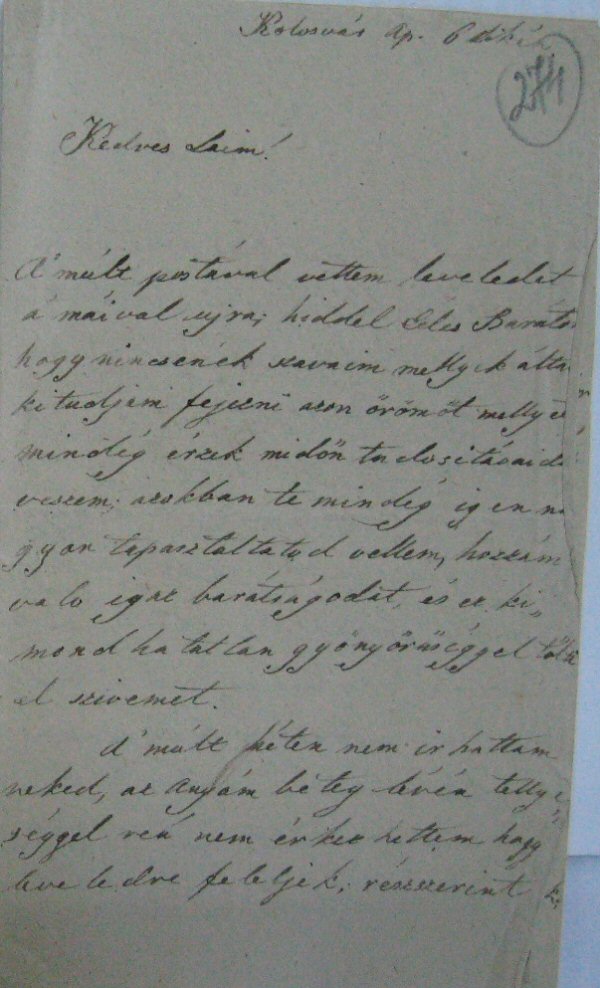 Kolosvár Ap. 6dikán
274
Kedves Laim!
A' múlt postával vettem leveledet
a' máival ujra; hiddel Édes Barátom
hogy nincsenek szavaim mellyek álta
ki tudjam fejezni azon örömöt melly
mindég érzek midőn tudositásaid
veszem; azokban te mindég igen na
gyon tapasztaltatod vellem, hozzám
valo igaz barátságodat, és ez ki„
mondhatatlan gyönyörüséggel tölti
el szivemet.
A' múlt héten nem irhattam
neked, az Anyám beteg lévén telly
séggel reá nem érkezhettem hogy
leveledre feleljek; részszerint